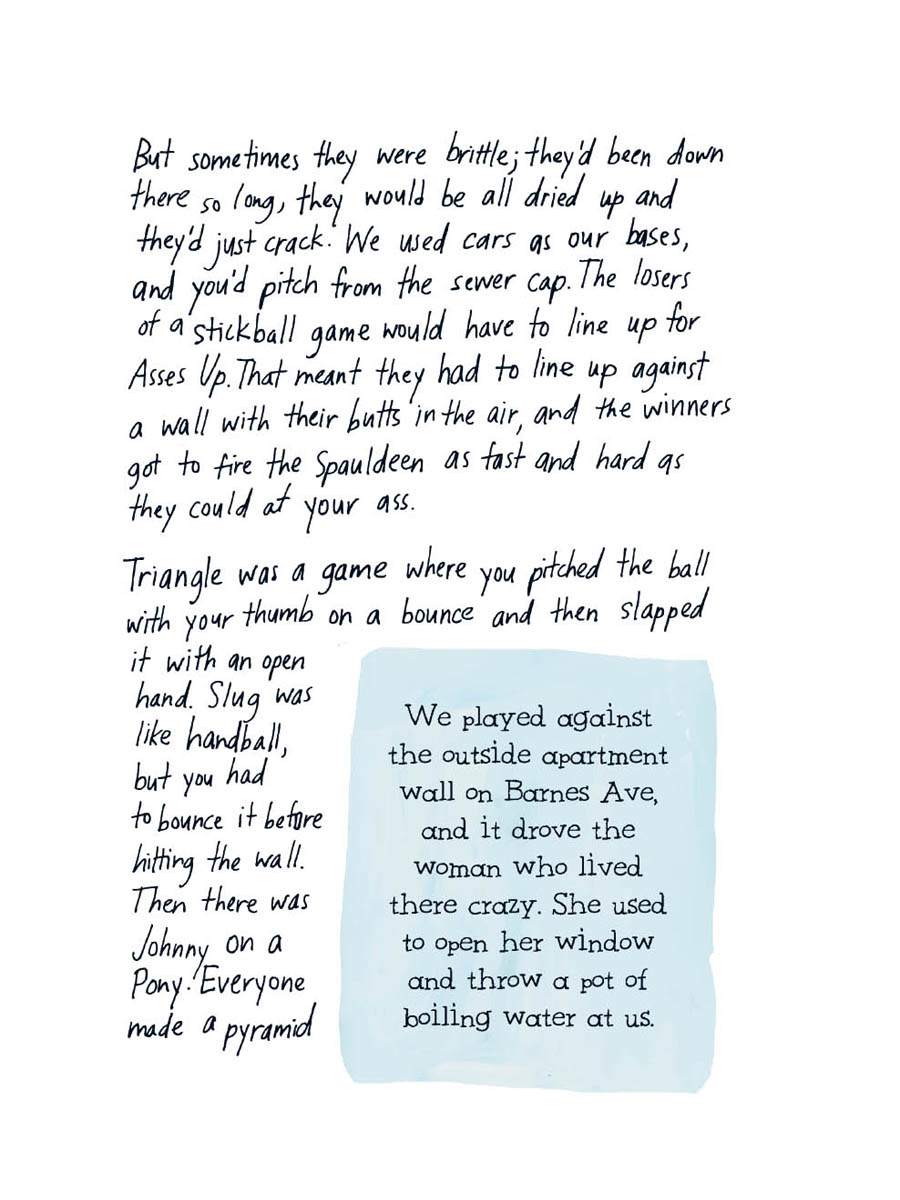 But sometimes they were brittle; they'd been down
there so long, they would be all dried up and
they'd just crack. We used cars as our bases,
and you'd pitch from the sewer cap. The losers
of a stickball game would have to line up for
Asses Up. That meant they had to line up against
a wall with their butts in the air, and the winners
got to fire the Spauldeen as fast and hard as
they could at your ass.
Triangle was a game where you pitched the ball
with your thumb on a bounce and then slapped
it with an open
hand. Slug was
like handball,
but you had
to bounce it before
hitting the wall.
Then there was
Johnny on a
Pony. Everyone
made a pyramid
We played against
the outside apartment
wall on Barnes Ave,
and it drove the
woman who lived
there crazy. She used
to open her window
and throw a pot of
boiling water at us.